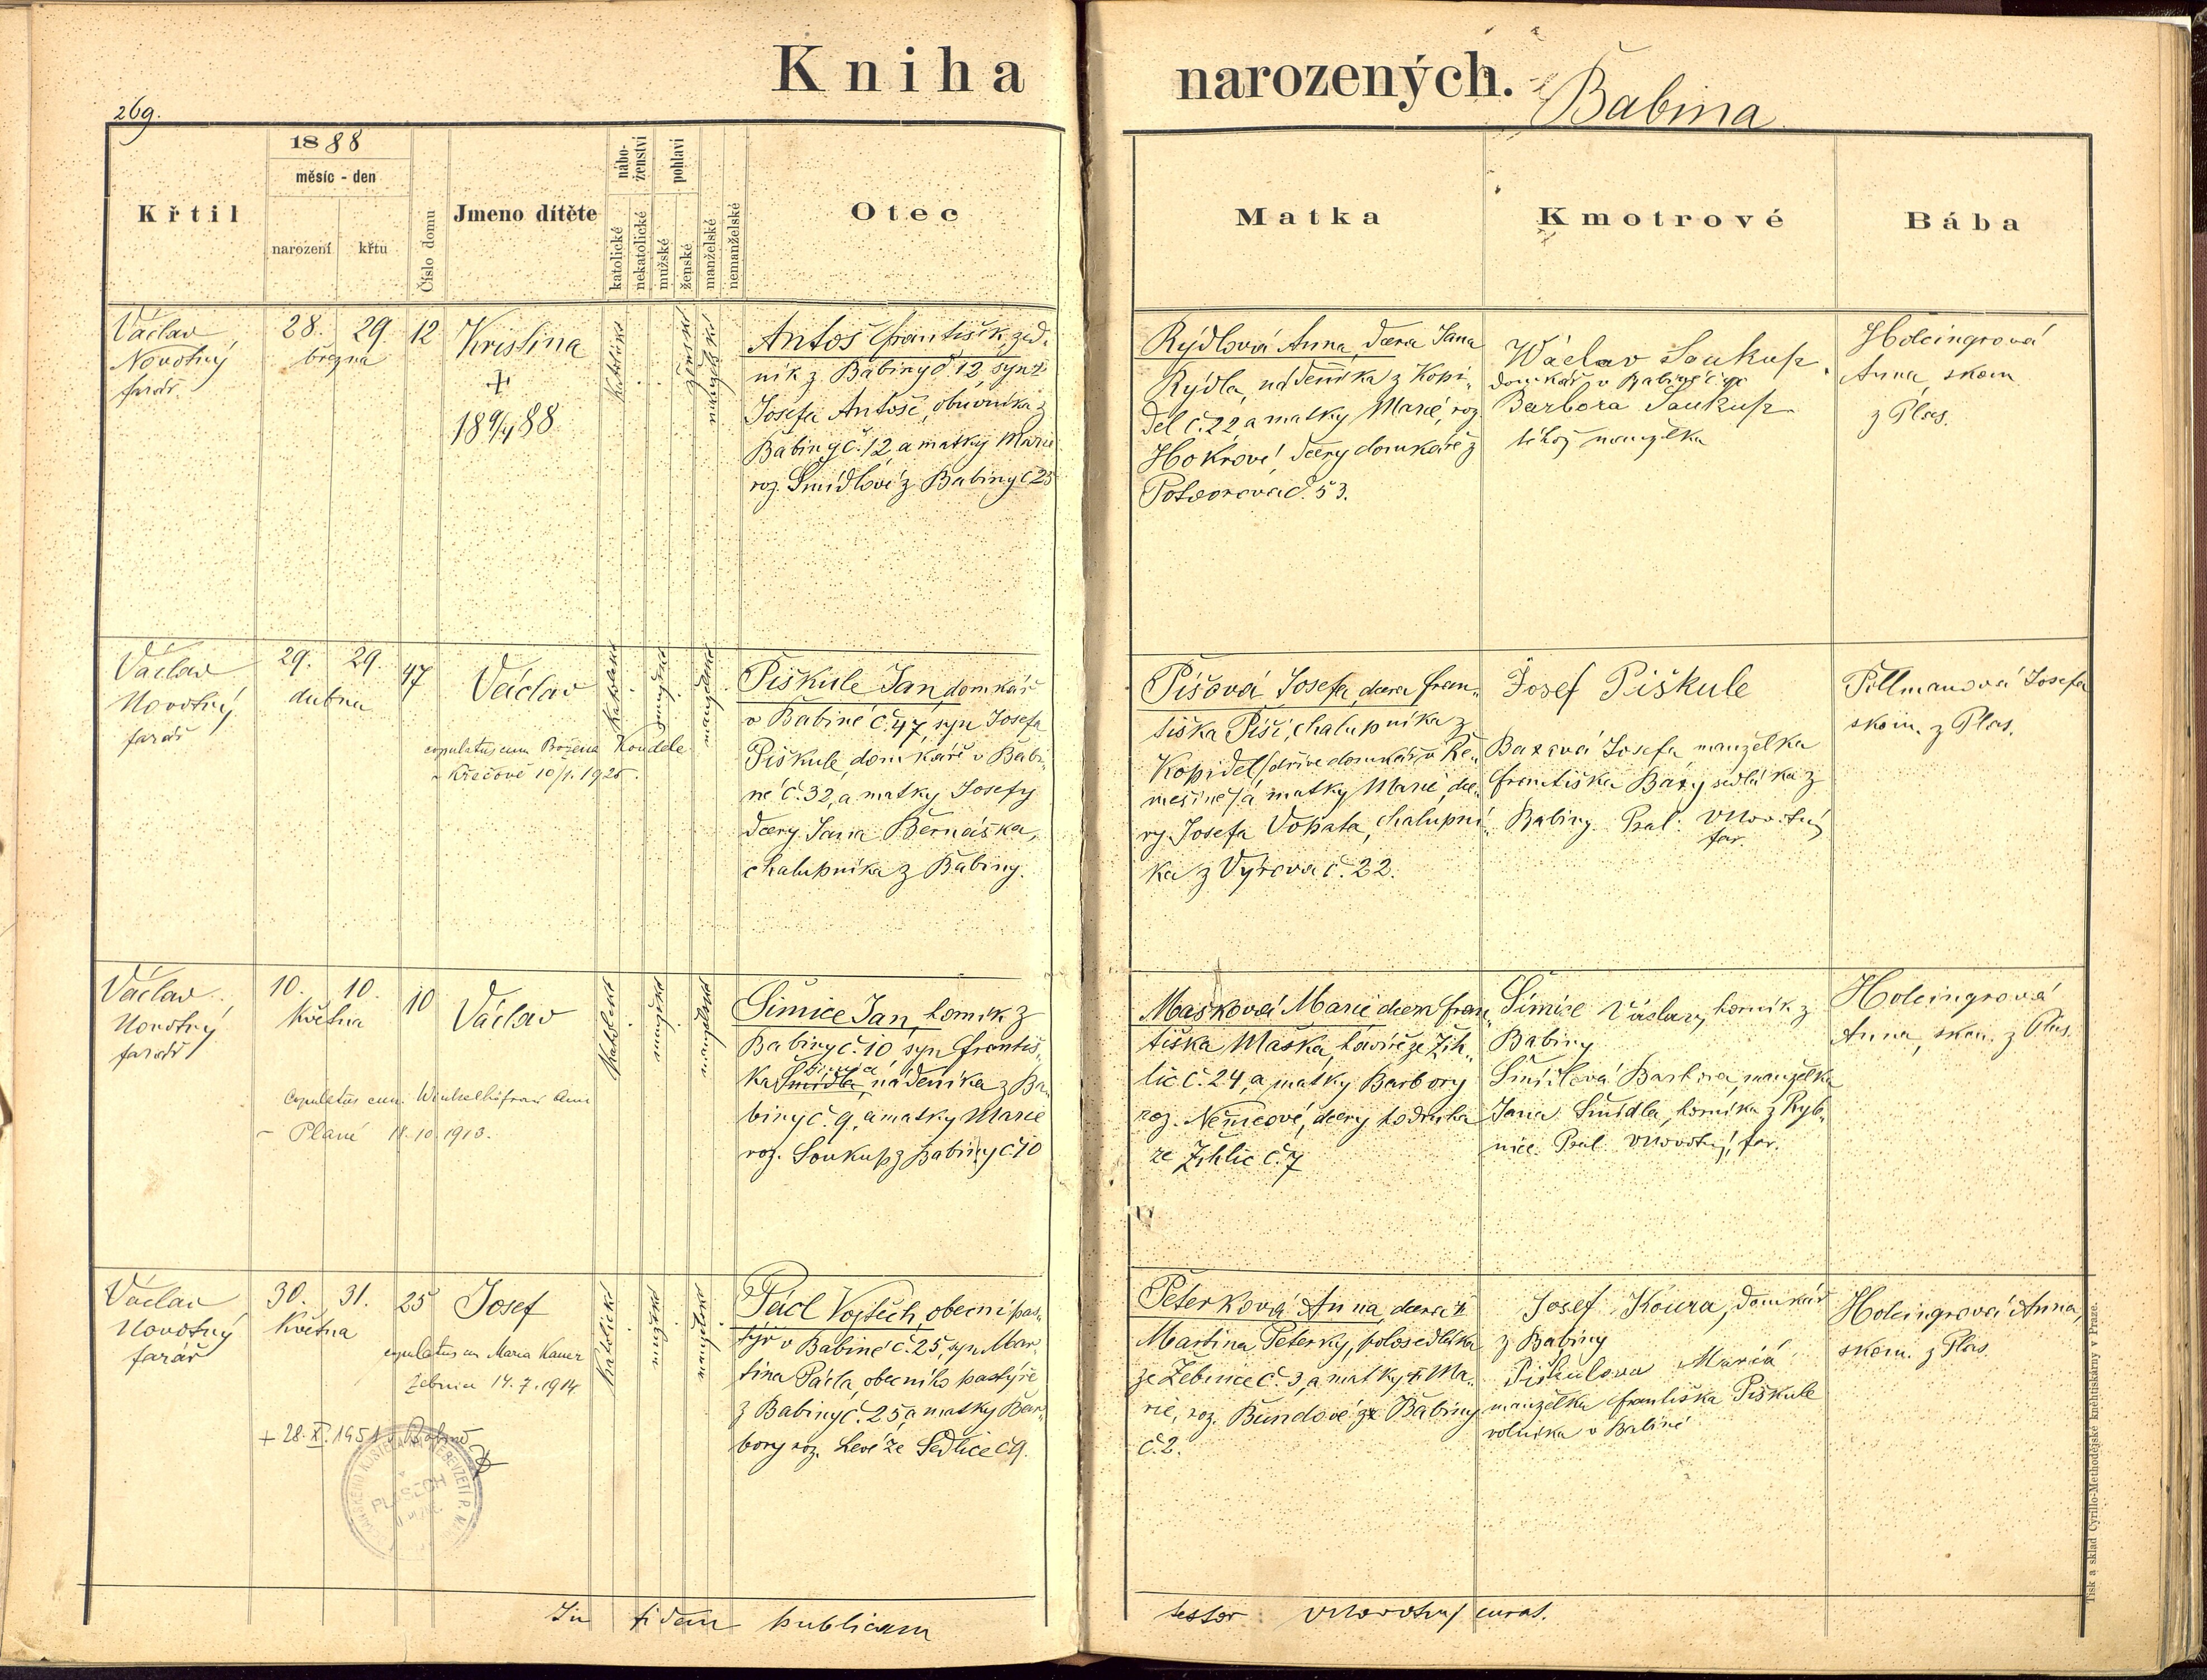 Kniha narozených.
Babina
269.
1888
měsíc - den
Křtil
narození
křtu
Číslo domu
Jmeno dítěte
nábo-
ženství
katolické
nekatolické
pohlaví
mužské
ženské
manželské
nemanželské
Otec
Matka
Kmotrové
Bába
Václav
Novotný
farář.
28. 29.
března
12
Kristina
+
18 9/4 88
katolické
ženské
manželské
Antoš František, zed-
ník z Babiny č. 12, syn
Josefa Antoše, obuvníka z
Babiny č. 12, a matky Marie
roz. Šmídlové z Babiny č 25
Rýdlová Anna, dcera Jana
Rýdla, nádeníka z Kopi-
del č. 22, a matky Marie, roz.
Hokrové, dcery domkáře z
Potvorova č. 53.
Wáclav Soukup,
domkář v Babině
Barbora Soukup
téhož manželka
Holcingrová
Anna, zkom
z Plas.
Václav
Novotný
farář
29. 29.
dubna
47
Václav
katolické
mužské
manželské
copulatus cum Božena Koudele
v Křečově 10/1. 1925.
Piškule Jan, domkář
v Babině č. 47, syn Josefa
Piškule, domkáře v Babi-
ně č. 32, a matky Josefy
dcery Jana Bernáška,
chalupníka z Babiny.
Píšová Josefa, dcera Fran-
tiška Píši, chalupníka z
Kopidel (dříve domkář v Ře-
mešíně) a matky Marie, dce-
ry Josefa Vopata, chalupní-
ka z Výrova č. 22.
Josef Piškule
Baxová Josefa manželka
Františka Baxy sedláka z
Babiny. Psal: VNovotný
far.
Pillmanová Josefa
zkom. z Plas.
Václav
Novotný
farář
10. 10.
Května
10
Václav
katolické
mužské
manželské
Copulatus cum. Winkelhöfrau Ann
Plané 18. 10. 1913.
Šimice Jan, horník z
Babiny č. 10, syn Františ-
Šimice
ka Šmídla, nádeníka z Ba-
biny č. 9, a matky Marie
roz. Soukup z Babiny č 10
Mašková Marie dcera Fran-
tiška Maška, havíře ze Žih-
lic č. 24, a matky Barbory
roz. Němcové, dcery podruha
ze Žihlic č. 7
Šimice Václav, horník z
Babiny
Šmídlová Barbora, manželka
Jana Šmídla, horníka z Ryb-
nice. Psal VNovotný, far.
Holcingrová
Anna, zkom. z Plas.
Václav
Novotný
farář
30. 31.
Května
25
Josef
katolické
mužské
manželské
copulatus cm Maria Kauer
Žebnice 14. 7. 1914
+ 28. XI. 1951 Babině
PLASECH
Pácl Vojtěch, obecní pas-
týř v Babině č. 25, syn Mar-
tina Pácla, obecního pastýře
z Babiny č. 25, a matky Bar-
bory roz. Levé ze Sedlice č 9.
Peterková Anna, dcera +
Martina Peterky, polosedláka
ze Žebnice č. 3, a matky + Ma-
rie, roz. Bundové z Babiny
č. 2.
Josef Koura, domkář
z Babiny
Piškulova Marie
manželka Františka Piškule
rolníka v Babině
Holcingrová Anna,
zkom. z Plas.
In fidem publicam
testor VNovotný curat.
Tisk a sklad Cyrillo-Methodějské knihtiskárny v Praze.